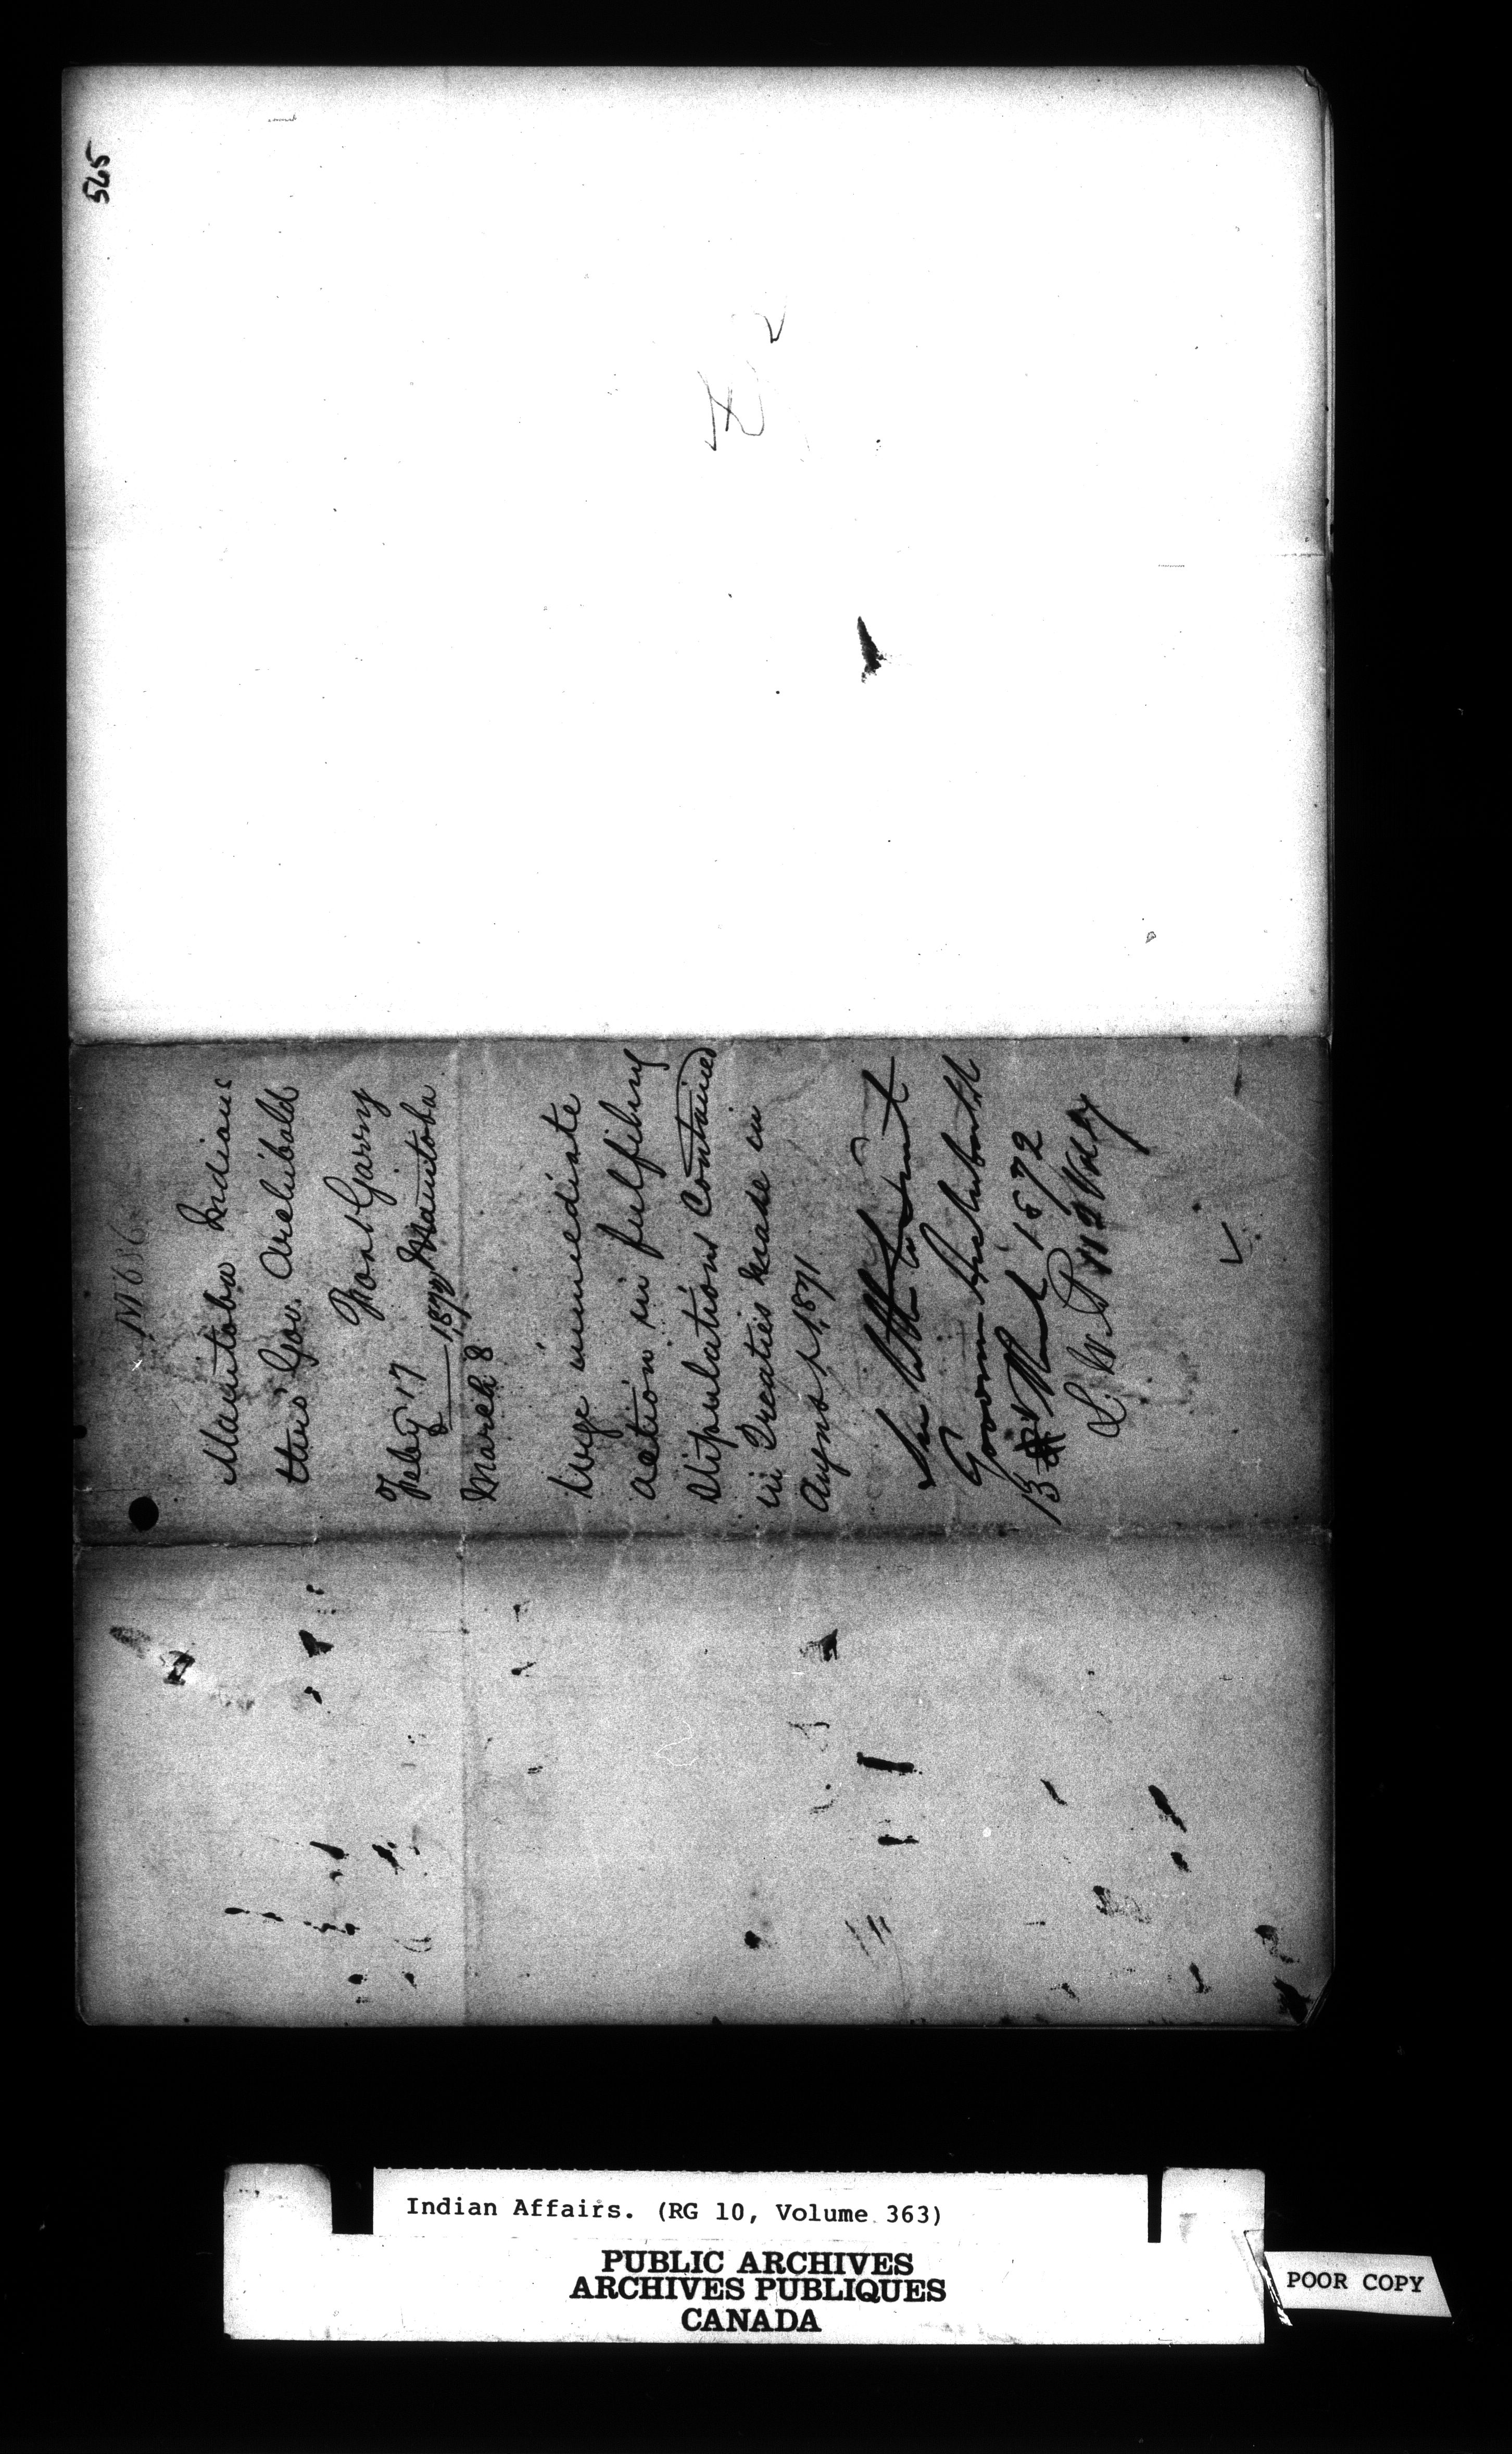 565
M 686
Manitoba Indians
thro' Gov. Archibald
Fort Garry
Manitoba
Feby 17 1872
March 8
Urge immediate
action in fulfilling
Stipulations Contained
in Treaties made in
August, 1871
See letter
Governor Archibald
13 March 1872
L. W. P.
Indian Affairs. (RG 10, Volume 363)
PUBLIC ARCHIVES
ARCHIVES PUBLIQUES
CANADA
POOR COPY